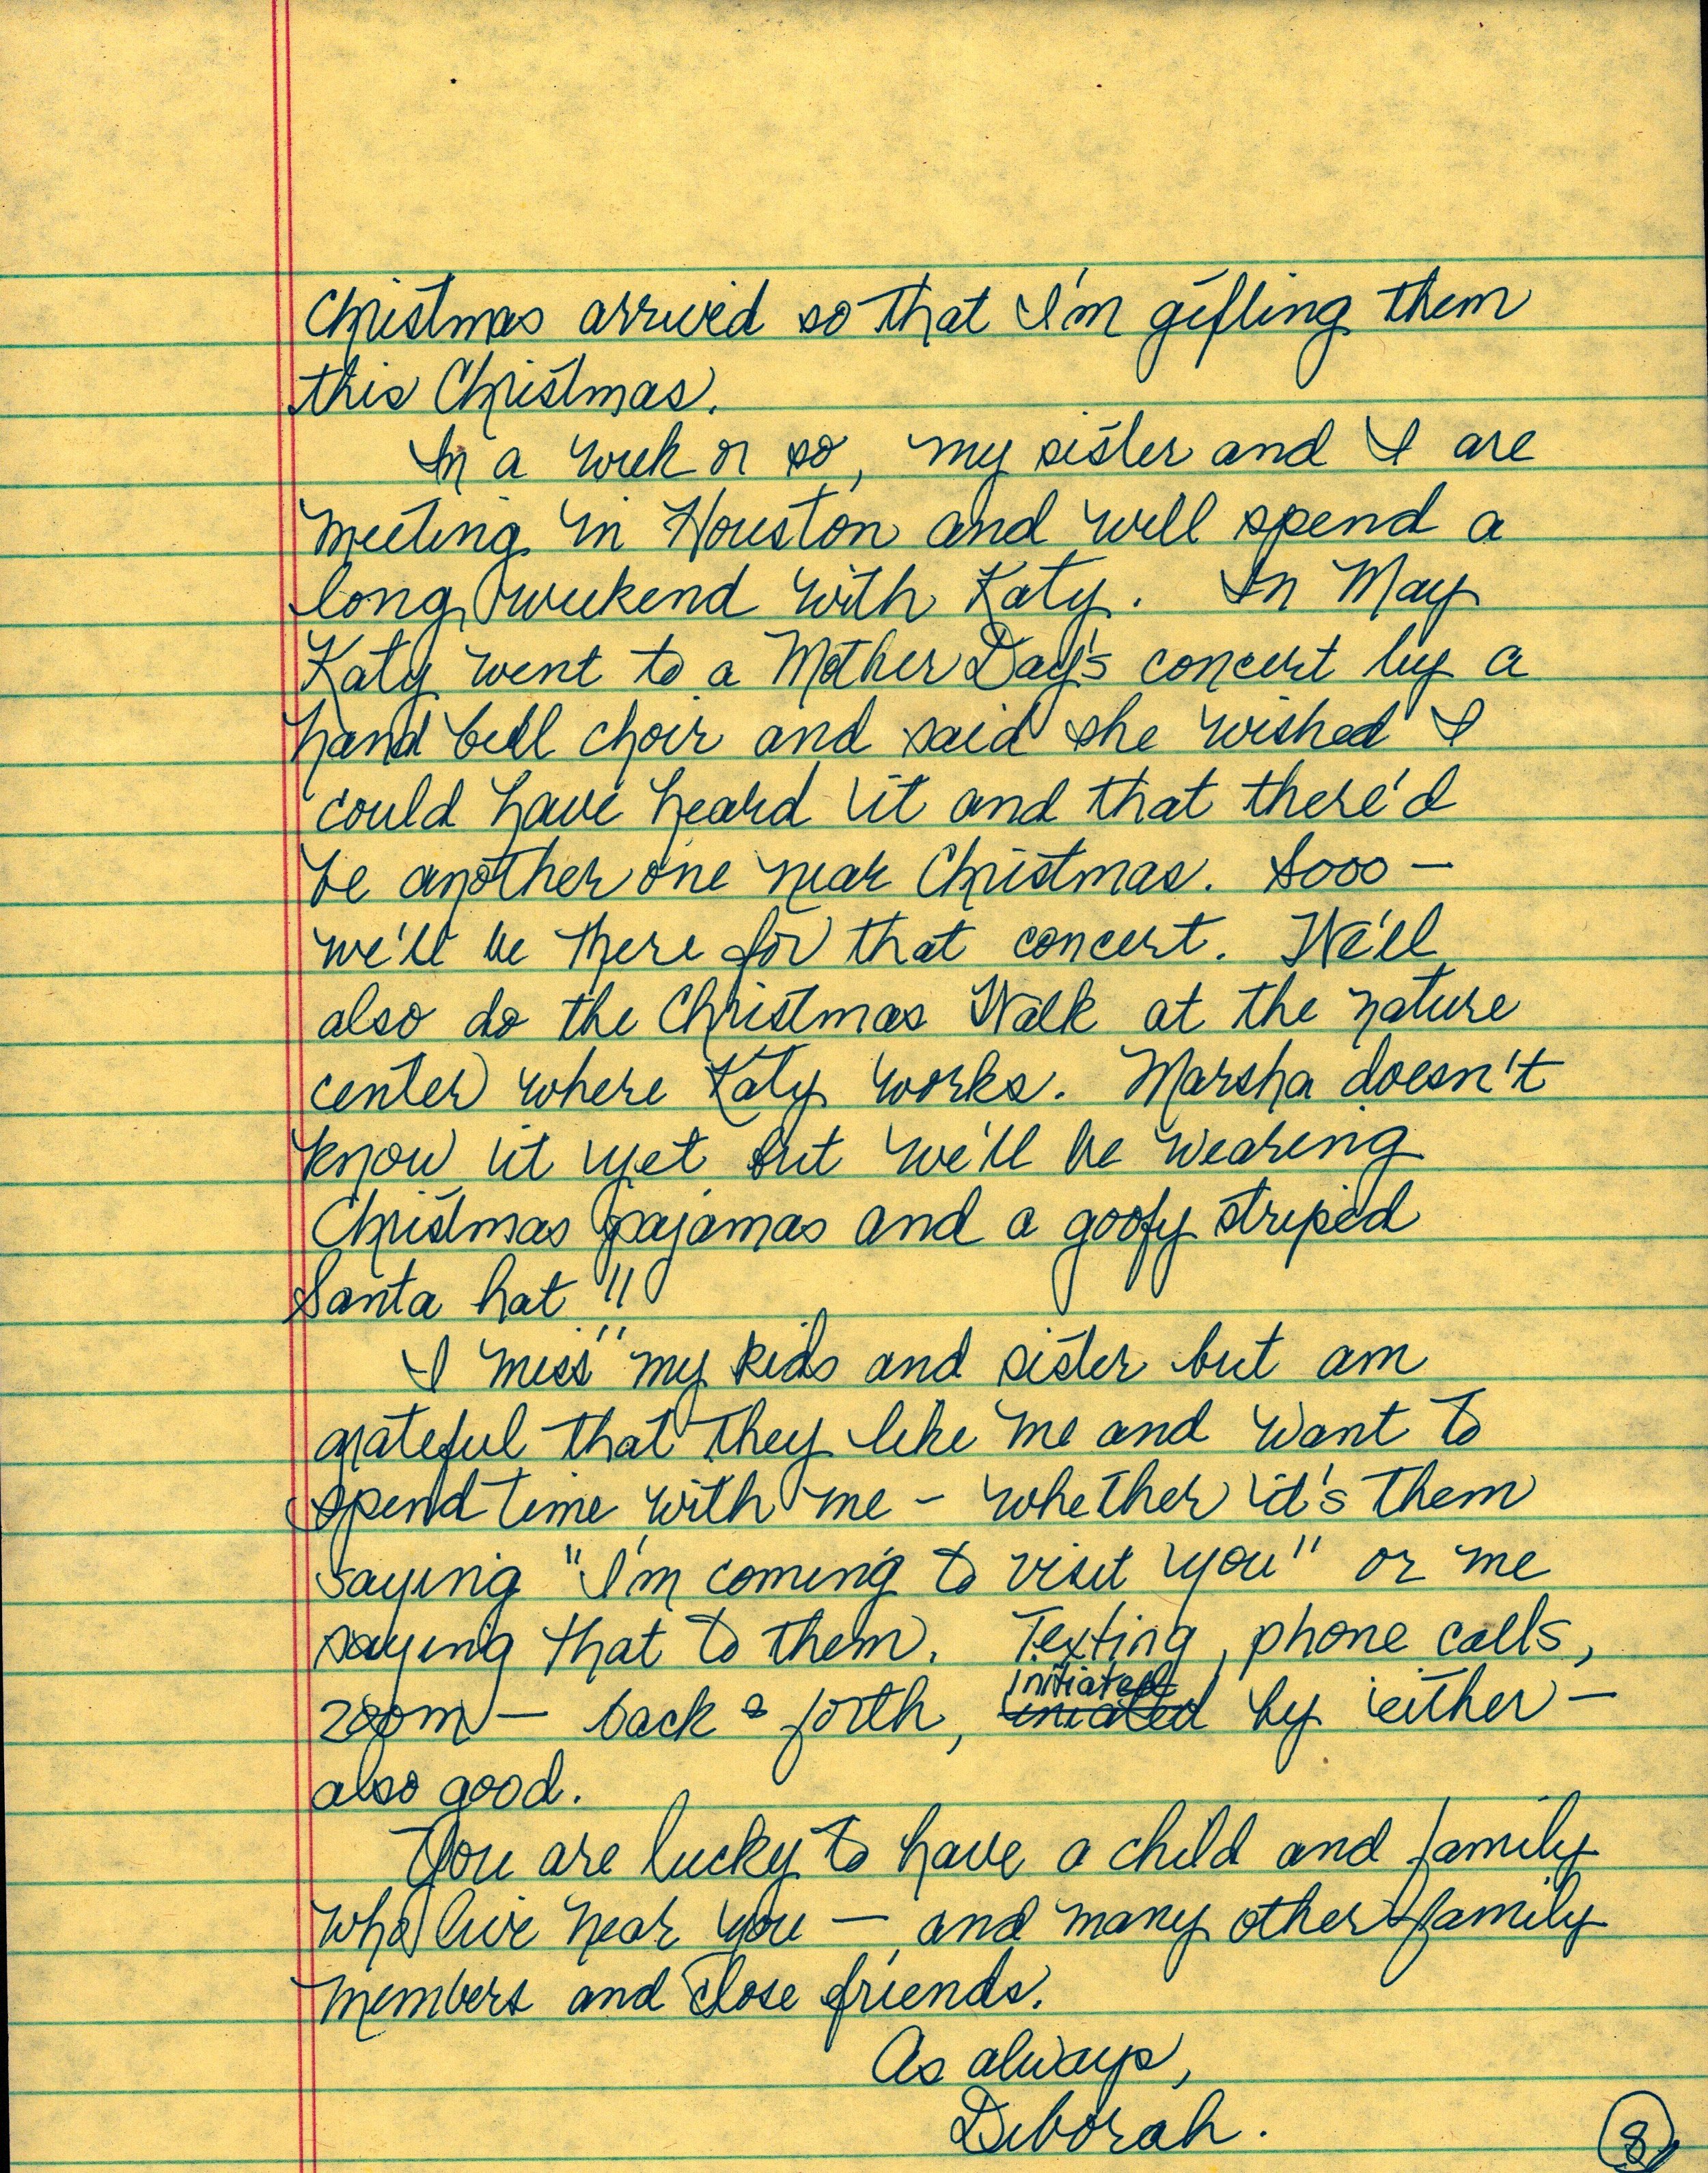 Christmas arrived so that I'm gifting them
this Christmas.
In a week or so, my sister and I are
meeting in Houston and will spend a
long weekend with Katy. In May
Katy went to a Mother Day's concert by a
hand bell choir and said she wished I
could have heard it and that there'd
be another one near Christmas. Sooo —
we'll be there for that concert. We'll
also do the Christmas Walk at the nature
center where Katy works. Marsha doesn't
know it yet but we'll be wearing
Christmas pajamas and a goofy striped
Santa hat!!
I miss my kids and sister but am
grateful that they like me and want to
spend time with me - whether it's them
saying "I'm coming to visit you" or me
saying that to them. Texting, phone calls,
initiated
zoom — back & forth, by either —
also good.
You are lucky to have a child and family
who live near you — and many other family
members and close friends.
As always,
Deborah.
8